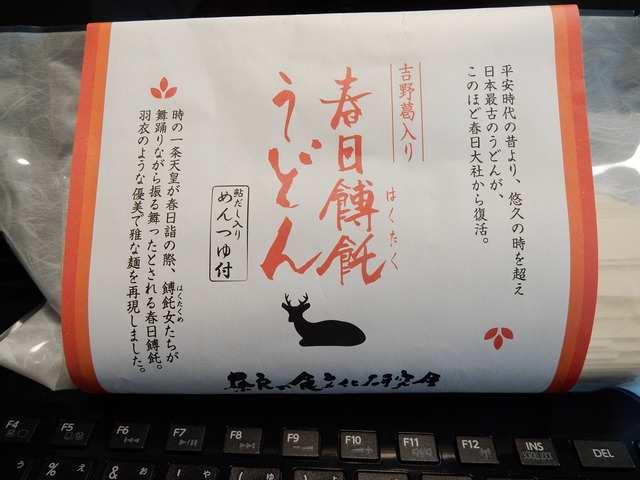 平安時代の昔より、悠久の時を超え
日本最古のうどんが、
このほど春日大社から復活。
吉野葛入り
春日餺飥
はくたく
うどん
鮎だし入り
めんつゆ付
時の一条天皇が春日詣の際、餺飥女たちが
はくたくめ
舞踊りながら振る舞ったとされる春日餺飥。
羽衣のような優美で雅な麺を再現しました。
奈良の食文化研究会
F4
F5
F6
F7
F8
F9
F10
F11
F12
INS
SCROLL LOCK
DEL
う
%
え
&
お